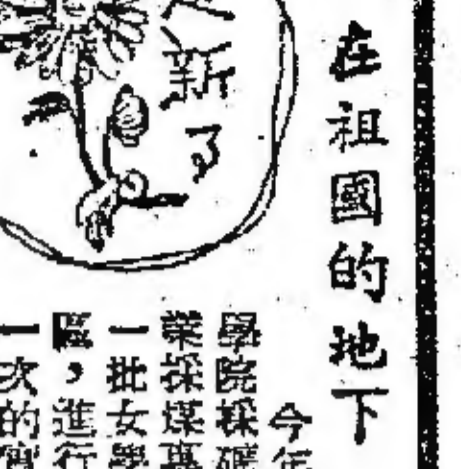 在祖國的地下
新了
今年
學院採礦
業採煤專
一批女學
區，進行
一次的實